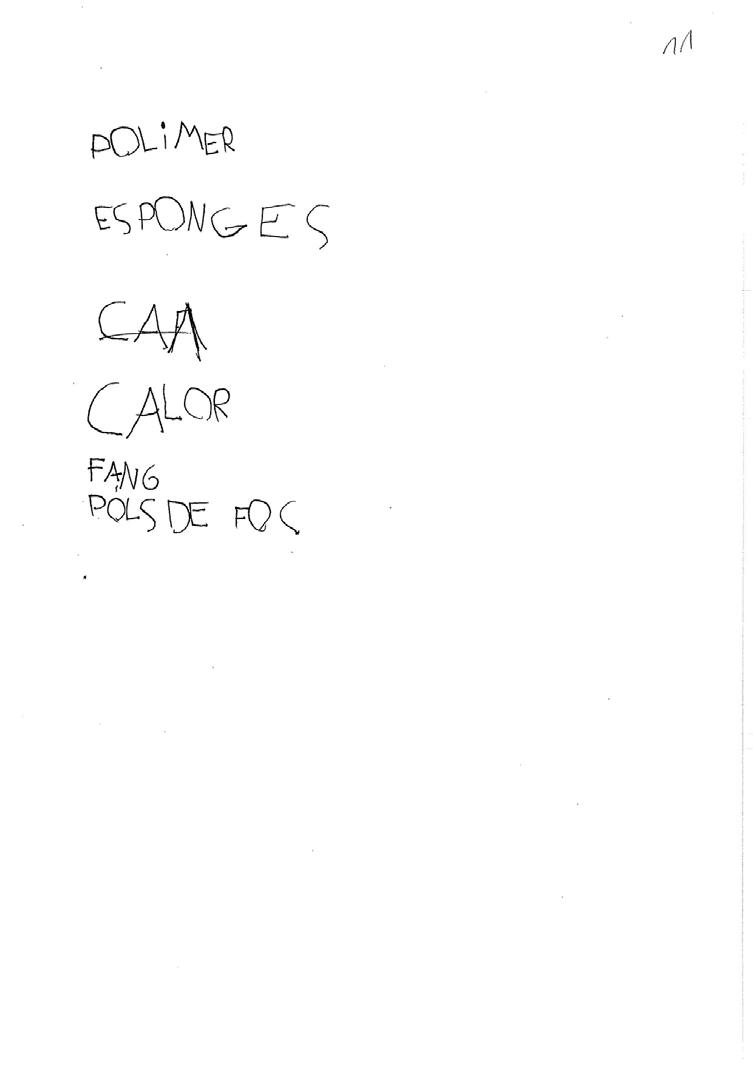 11
POLiMER
ESPONGES
CAA
CALOR
FANG
POLS DE FOC